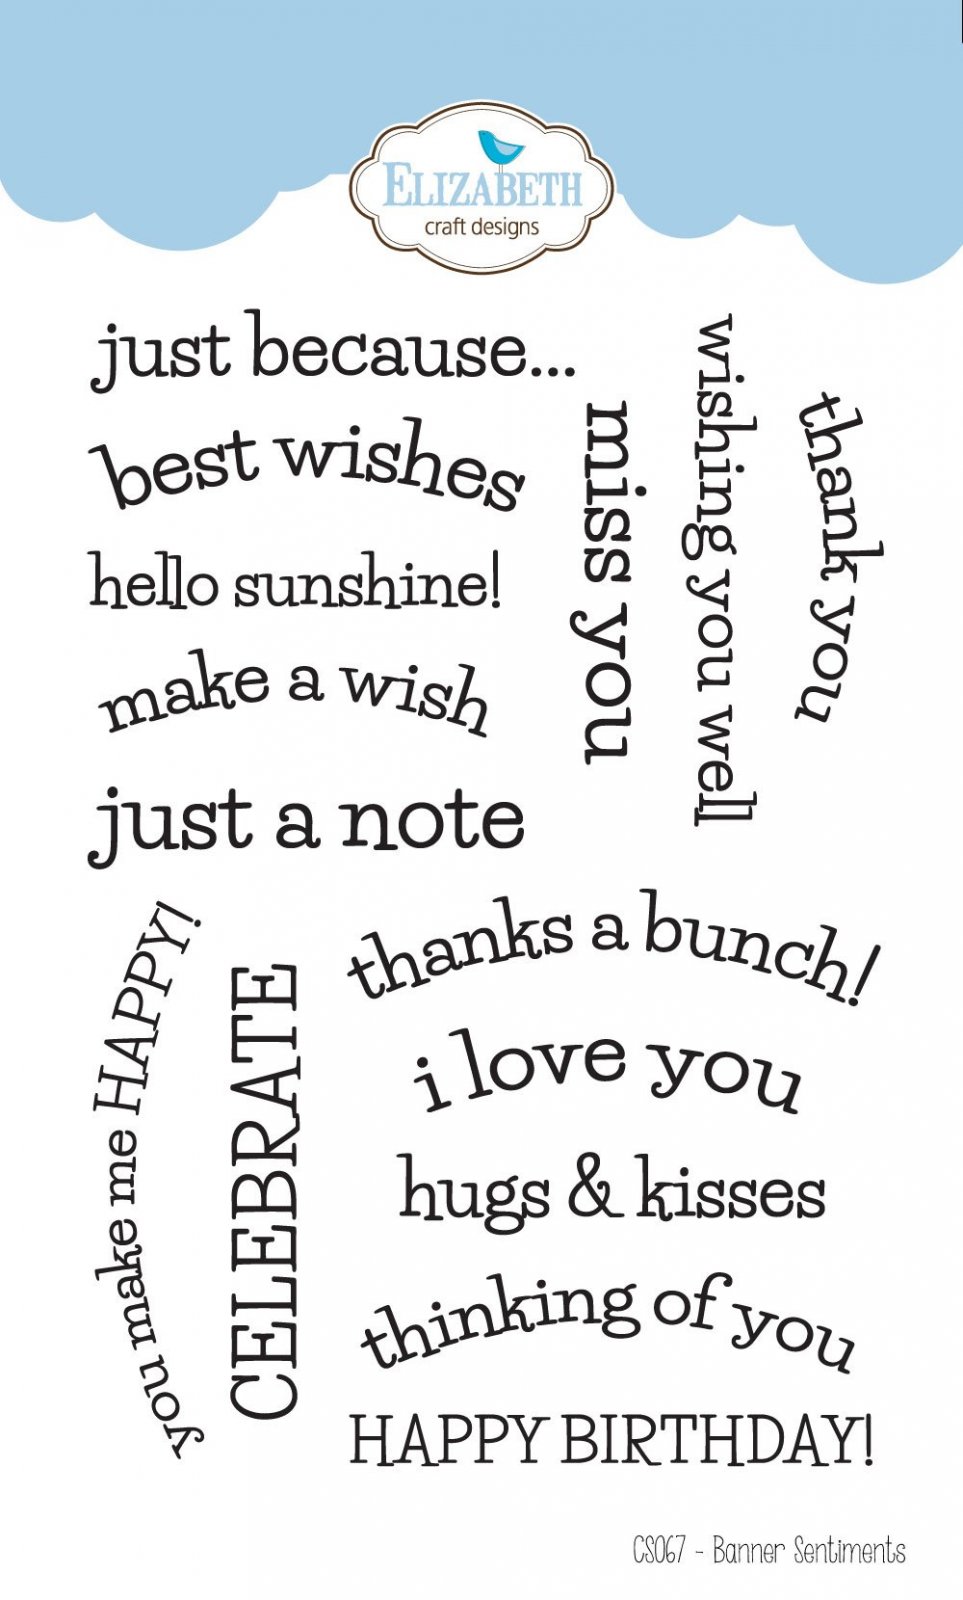 ELIZABETH
craft designs
just because...
best wishes
hello sunshine!
make a wish
just a note
miss you
wishing you well
thank you
you make me HAPPY!
CELEBRATE
thanks a bunch!
i love you
hugs & kisses
thinking of you
HAPPY BIRTHDAY!
CS067 - Banner Sentiments